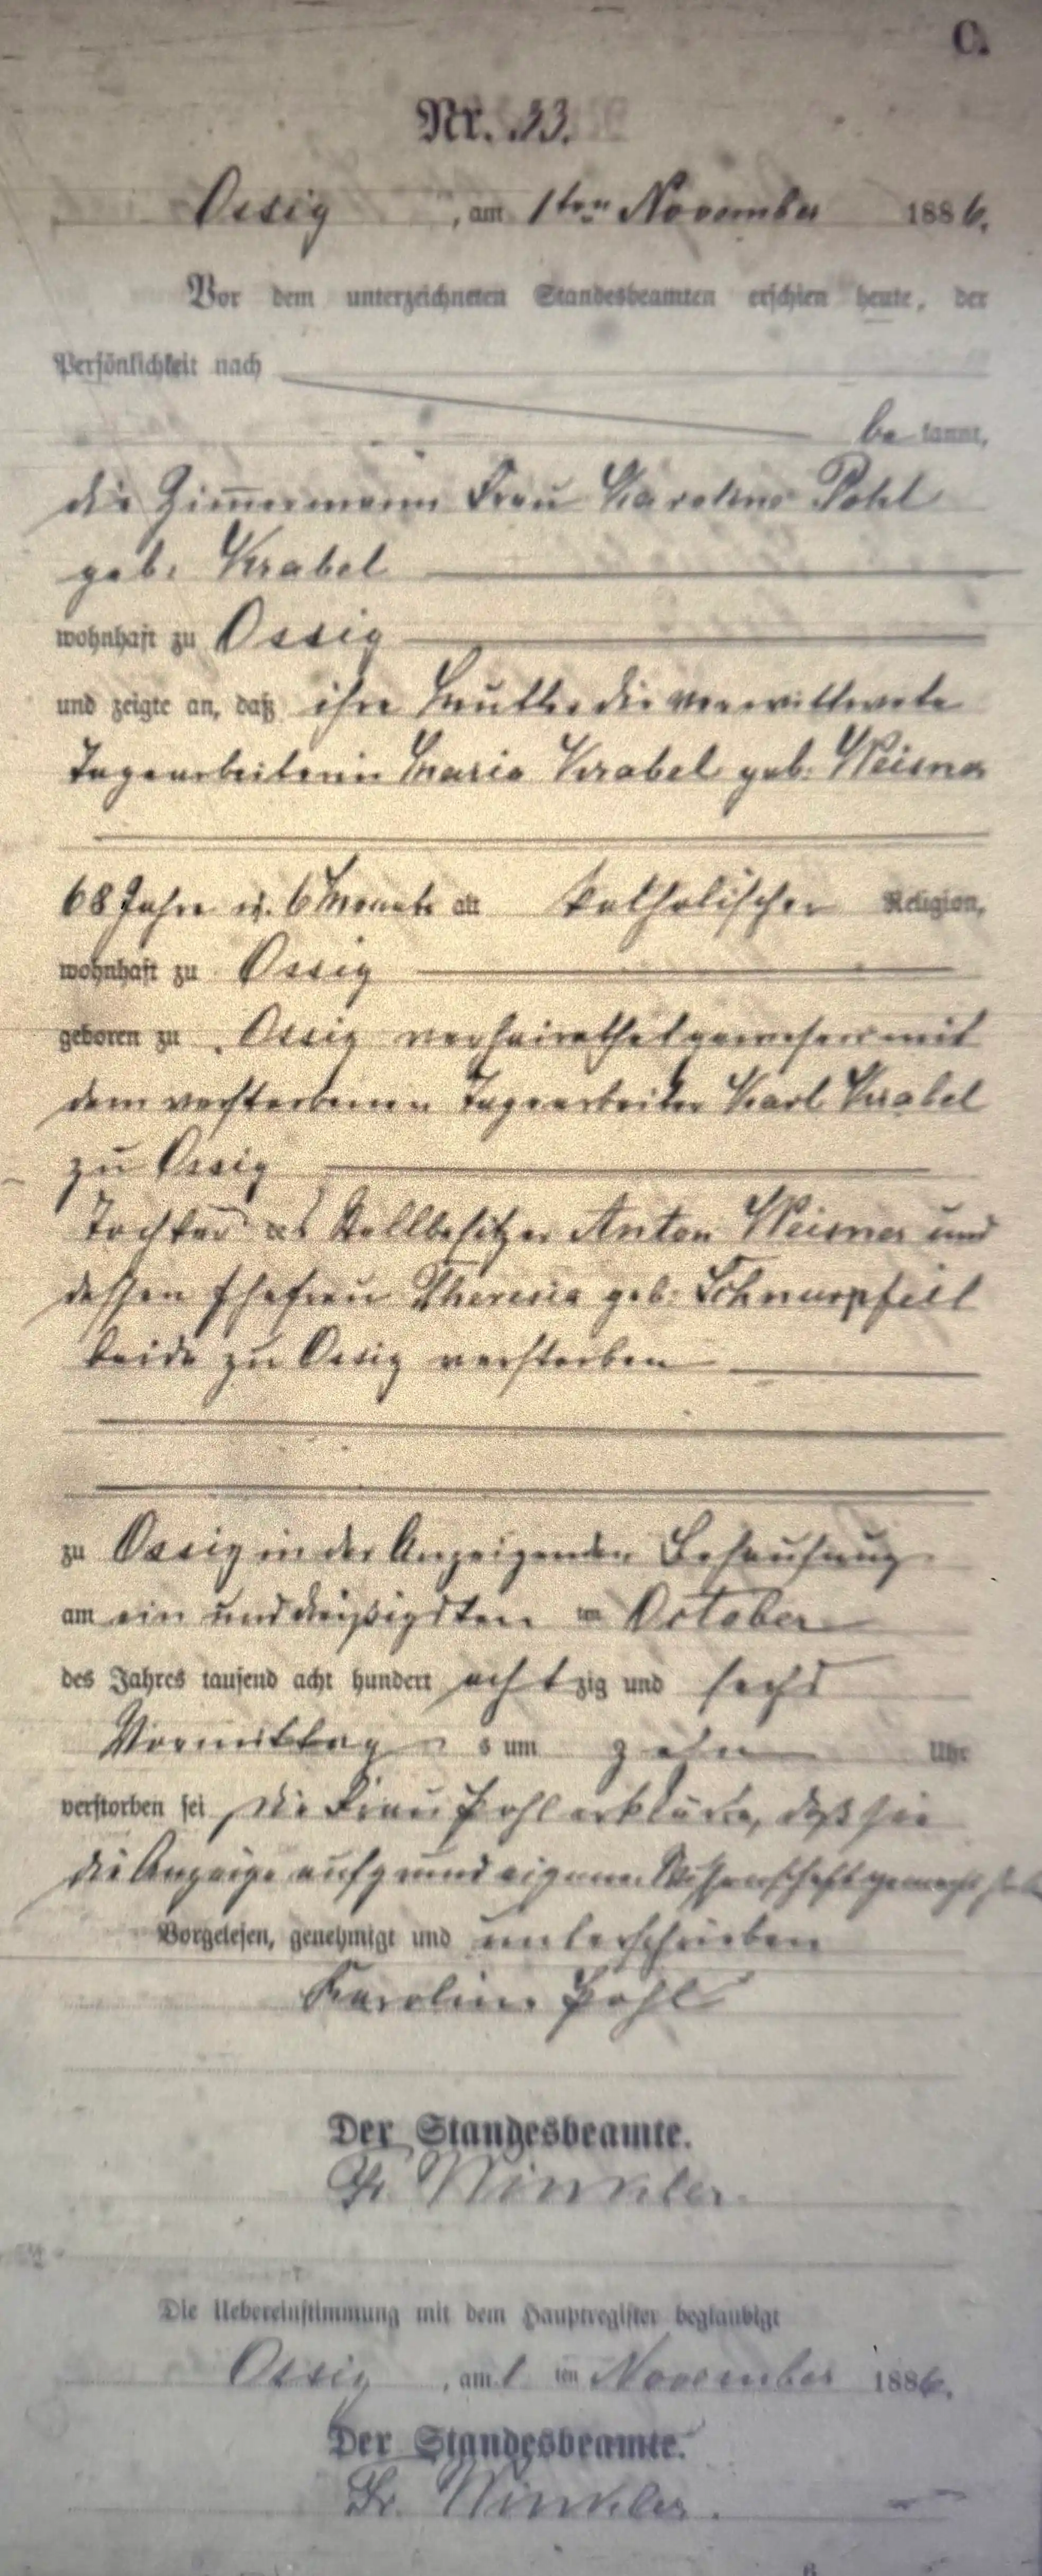 C.
Nr. 33.
Ossig, am 1ten November 1886.
Vor dem unterzeichneten Standesbeamten erschien heute, der
Persönlichkeit nach
be kannt,
die Zimmermann Frau Karoline Pohl
geb. Krabel
wohnhaft zu Ossig
und zeigte an, daß ihre Mutter die verwittwete
Tagearbeiterin Maria Krabel geb. Weisner
68 Jahre u. 6 Monate alt katholischer Religion,
wohnhaft zu Ossig
geboren zu Ossig verheirathet gewesen mit
dem verstorbenen Tagearbeiter Karl Krabel
zu Ossig
Tochter des Stellbesitzer Anton Weisner und
dessen Ehefrau Theresia geb. Schnurpfeil
beide zu Ossig verstorben
zu Ossig in der Anzeigenden Behausung
am ein und dreißigsten ten October
des Jahres tausend acht hundert achtzig und sechs
Vormittags um zehn Uhr
verstorben sei Die Frau Pohl erklärte, daß sie
die Anzeige aufgrund eigener Wissenschaft gemacht habe
Vorgelesen, genehmigt und unterschrieben
Karoline Pohl
Der Standesbeamte.
Fr. Winkler.
Die Uebereinstimmung mit dem Hauptregister beglaubigt
Ossig, am 1 ten November 1886.
Der Standesbeamte.
Fr. Winkler.